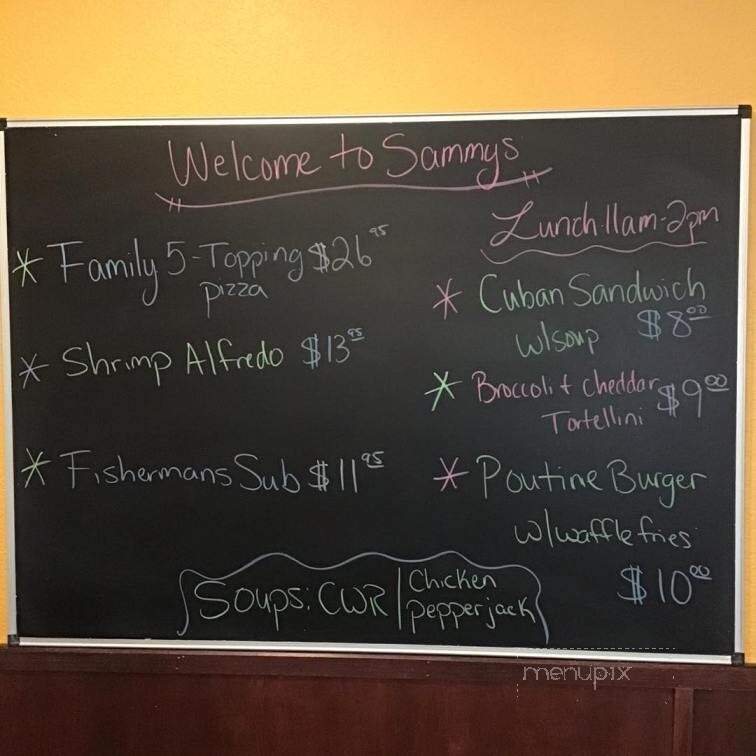 Welcome to Sammys
* Family 5-Topping $26.95
pizza
* Shrimp Alfredo $13.95
* Fishermans Sub $11.95
Lunch 11am-2pm
* Cuban Sandwich
w/soup $8.00
* Broccoli + cheddar $9.00
Tortellini
* Poutine Burger
w/waffle fries
$10.00
Soups: CWR | Chicken
pepperjack
menupix